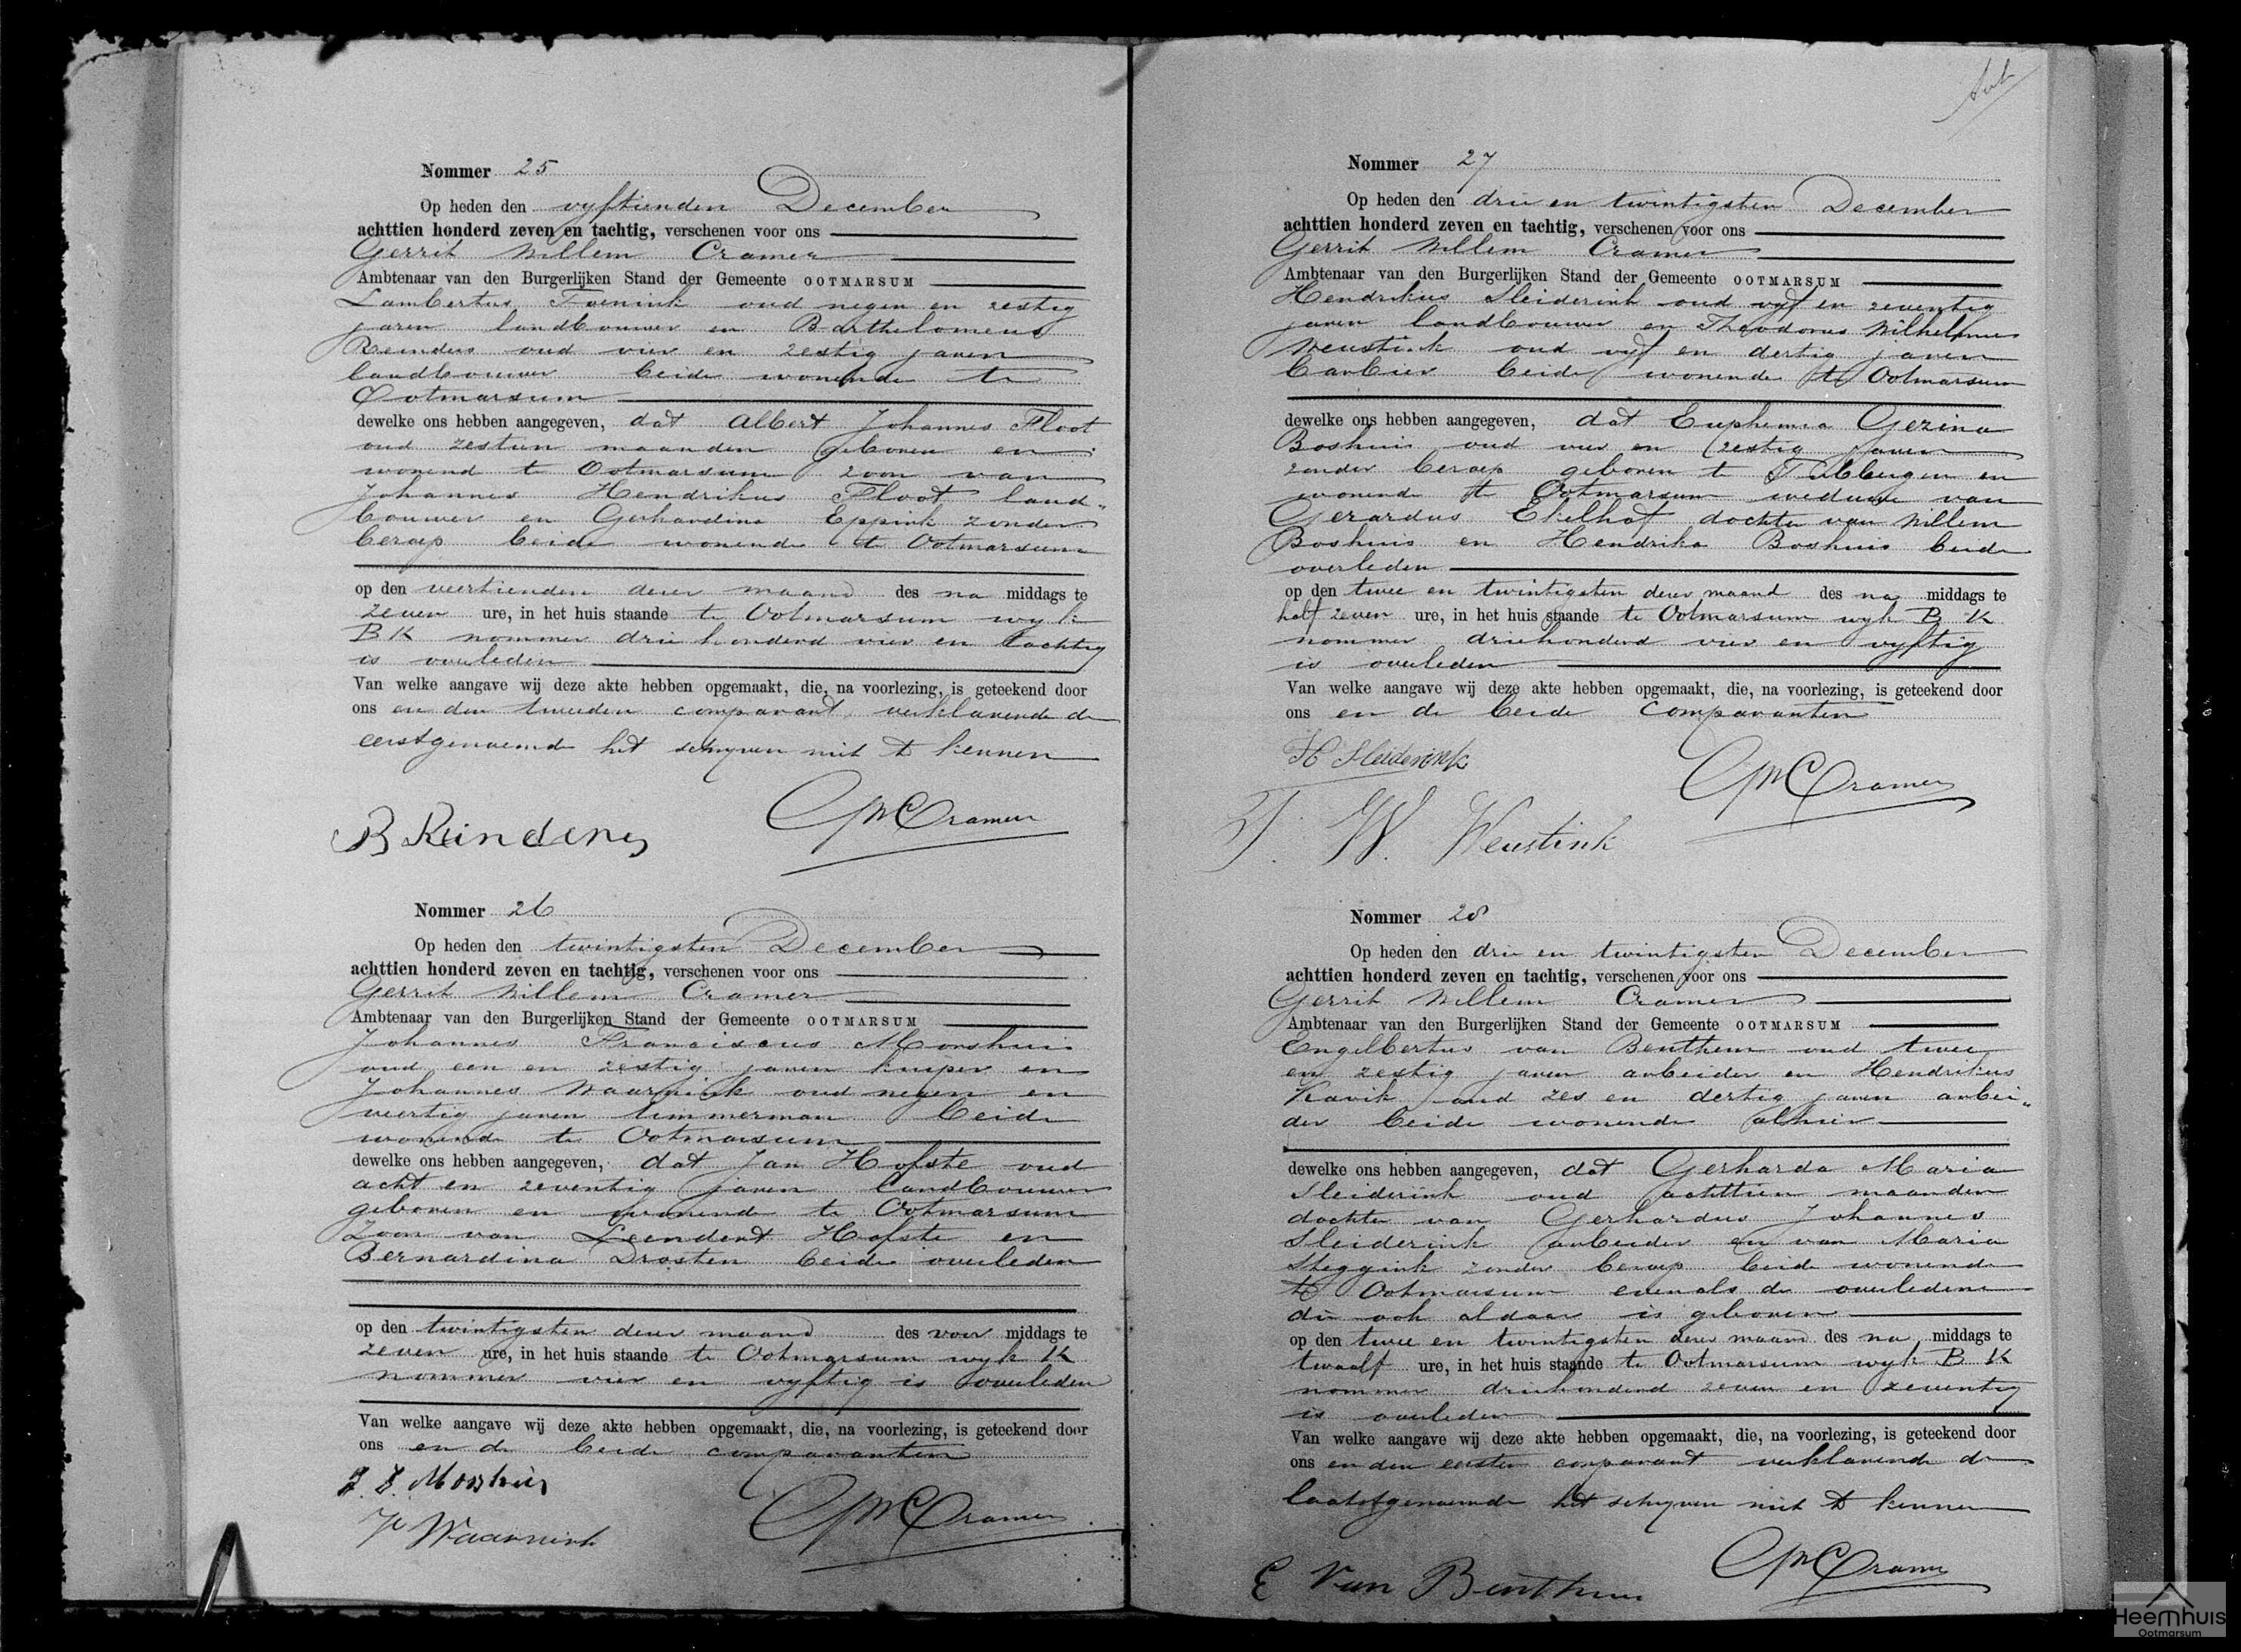 Nommer 25
Op heden den vyftienden December
achttien honderd zeven en tachtig, verschenen voor ons
Gerrit Willem Cramer
Ambtenaar van den Burgerlijken Stand der Gemeente OOTMARSUM
Lambertus oud negen en zestig
jaren landbouwer en Bartholomeus
Reinders oud vier en zestig jaren
landbouwer beide wonende te
Ootmarsum
dewelke ons hebben aangegeven, dat Albert Johannes Floot
oud zestien maanden geboren en
wonend te Ootmarsum zoon van
Johannes Hendrikus Floot land-
bouwer en Gerhardina Eppink zonder
beroep beide wonende te Ootmarsum
op den veertienden dezer maand des na middags te
zeven ure, in het huis staande te Ootmarsum wyk
B K nommer drie honderd vier en tachtig
is overleden
Van welke aangave wij deze akte hebben opgemaakt, die, na voorlezing, is geteekend door
ons en den tweeden comparant, verklarende de
eerstgenoemde het schryven niet te kennen
B Reinders
GWCramer
Nommer 26
Op heden den twintigsten December
achttien honderd zeven en tachtig, verschenen voor ons
Gerrit Willem Cramer
Ambtenaar van den Burgerlijken Stand der Gemeente OOTMARSUM
Johannes Franciscus Morshuis
oud een en zestig jaren kuiper en
Johannes Waarnink oud negen en
veertig jaren timmerman beide
wonende te Ootmarsum
dewelke ons hebben aangegeven, dat Jan Hofste oud
acht en zeventig jaren landbouwer
geboren en wonend te Ootmarsum
Zoon van Leendert Hofste en
Bernardina Drosten beide overleden
op den twintigsten dezer maand des voor middags te
zeven ure, in het huis staande te Ootmarsum wyk K
nommer vier en vyftig is overleden
Van welke aangave wij deze akte hebben opgemaakt, die, na voorlezing, is geteekend door
ons en de beide comparanten
J. F. Morshuis
J Waarnink
GWCramer
Nommer 27
Op heden den drie en twintigsten December
achttien honderd zeven en tachtig, verschenen voor ons
Gerrit Willem Cramer
Ambtenaar van den Burgerlijken Stand der Gemeente OOTMARSUM
Hendrikus Sleiderink oud vyf en zeventig
jaren landbouwer en Theodorus Wilhelmus
Weustink oud vyf en dertig jaren
barbier beide wonende te Ootmarsum
dewelke ons hebben aangegeven, dat Euphemia Gezina
Boshuis oud vier en zestig jaren
zonder beroep geboren te Tubbergen en
wonende te Ootmarsum weduwe van
Gerardus Ekelhof dochter van Willem
Boshuis en Hendrika Boshuis beide
overleden
op den twee en twintigsten dezer maand des na middags te
half zeven ure, in het huis staande te Ootmarsum wyk B K
nommer driehonderd vier en vyftig
is overleden
Van welke aangave wij deze akte hebben opgemaakt, die, na voorlezing, is geteekend door
ons en de beide comparanten
H Sleiderink
GWCramer
T. W. Weustink
Nommer 28
Op heden den drie en twintigsten December
achttien honderd zeven en tachtig, verschenen voor ons
Gerrit Willem Cramer
Ambtenaar van den Burgerlijken Stand der Gemeente OOTMARSUM
Engelbertus van Benthem oud twee
en zestig jaren arbeider en Hendrikus
Kavik oud zes en dertig jaren arbei-
der beide wonende alhier
dewelke ons hebben aangegeven, dat Gerharda Maria
Sleiderink oud achttien maanden
dochter van Gerhardus Johannes
Sleiderink arbeider en van Maria
Steggink zonder beroep beide wonende
te Ootmarsum evenals de overledene
die ook aldaar is geboren
op den twee en twintigsten dezer maand des na middags te
twaalf ure, in het huis staande te Ootmarsum wyk B K
nommer driehonderd zeven en zeventig
is overleden
Van welke aangave wij deze akte hebben opgemaakt, die, na voorlezing, is geteekend door
ons en den eersten comparant verklarende de
laatstgenoemde het schryven niet te kennen
GWCramer
E Van Benthem
Heemhuis
Ootmarsum